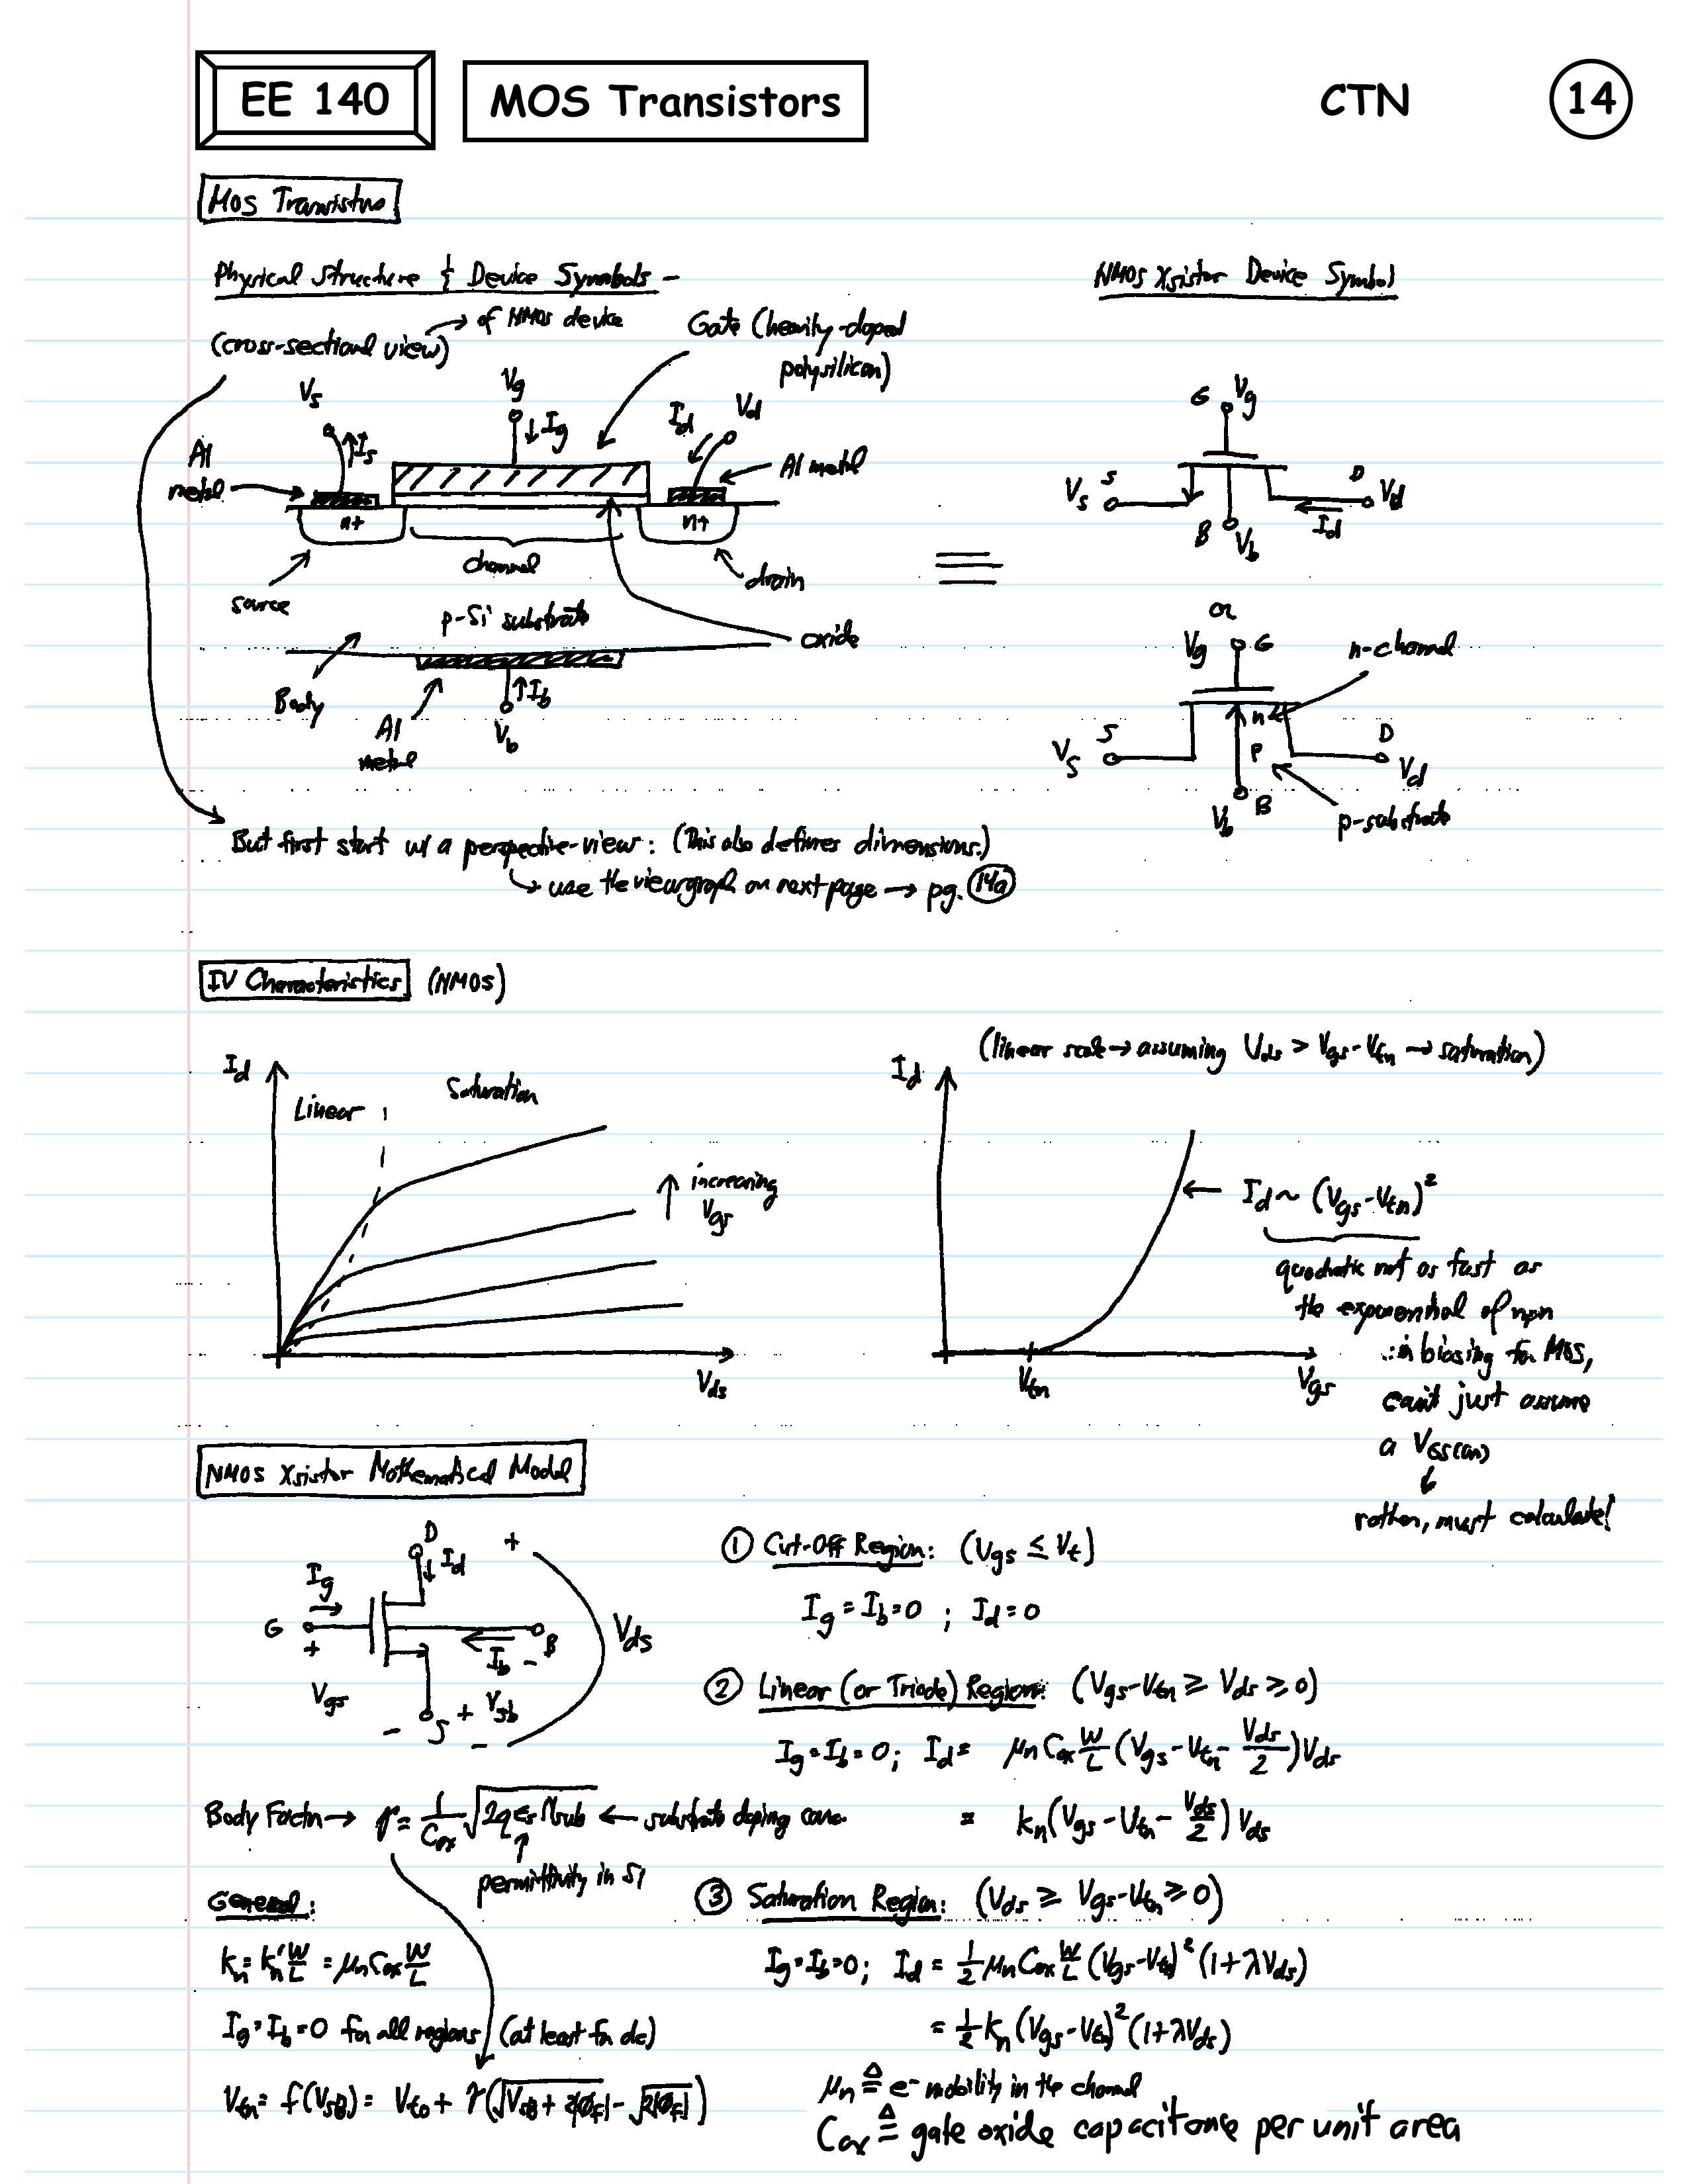 EE 140 MOS Transistors CTN 14
MOS Transistors
Physical Structure & Device Symbols - NMOS Xsistor Device Symbol
(cross-sectional view) → of NMOS device
Gate (heavily-doped
polysilicon)
Vs Vg Id Vd
Is Ig
Al
metal
Al metal
n+ n+
channel
source drain
p-Si substrate
oxide
Body
Al
metal
Ib
Vb
≡
G Vg
Vs S D Vd
Id
B Vb
or
Vg G
n-channel
n
Vs S D Vd
P
Vb B
p-substrate
But first start w/ a perspective-view: (This also defines dimensions.)
↳ use the viewgraph on next page → pg. 14a
IV Characteristics (NMOS)
Id
Linear
Saturation
↑ increasing
Vgs
Vds
(linear scale → assuming Vds > Vgs-Vtn → saturation)
Id
← Id ~ (Vgs-Vtn)²
quadratic not as fast as
the exponential of npn
∴ in biasing for MOS,
can't just assume
a VGS(on)
↓
rather, must calculate!
Vtn
Vgs
NMOS Xsistor Mathematical Model
D +
Ig Id
G
+
B
Ib -
Vds
Vgs
Vsb
- S +
-
① Cut-Off Region: (Vgs ≤ Vt)
Ig = Ib = 0 ; Id = 0
② Linear (or Triode) Region: (Vgs-Vtn ≥ Vds ≥ 0)
Ig = Ib = 0; Id = μn Cox W/L (Vgs - Vtn - Vds/2) Vds
= kn (Vgs - Vtn - Vds/2) Vds
Body Factor → γ = 1/Cox √2qεsNsub ← substrate doping conc.
permittivity in Si
③ Saturation Region: (Vds ≥ Vgs-Vtn ≥ 0)
Ig = Ib = 0; Id = 1/2 μn Cox W/L (Vgs-Vtn)² (1+λVds)
= 1/2 kn (Vgs-Vtn)² (1+λVds)
General:
kn = kn' W/L = μn Cox W/L
Ig = Ib = 0 for all regions (at least for dc)
Vtn = f(VSB) = Vto + γ(√VSB + 2|ϕf| - √2|ϕf|)
μn ≜ e- mobility in the channel
Cox ≜ gate oxide capacitance per unit area